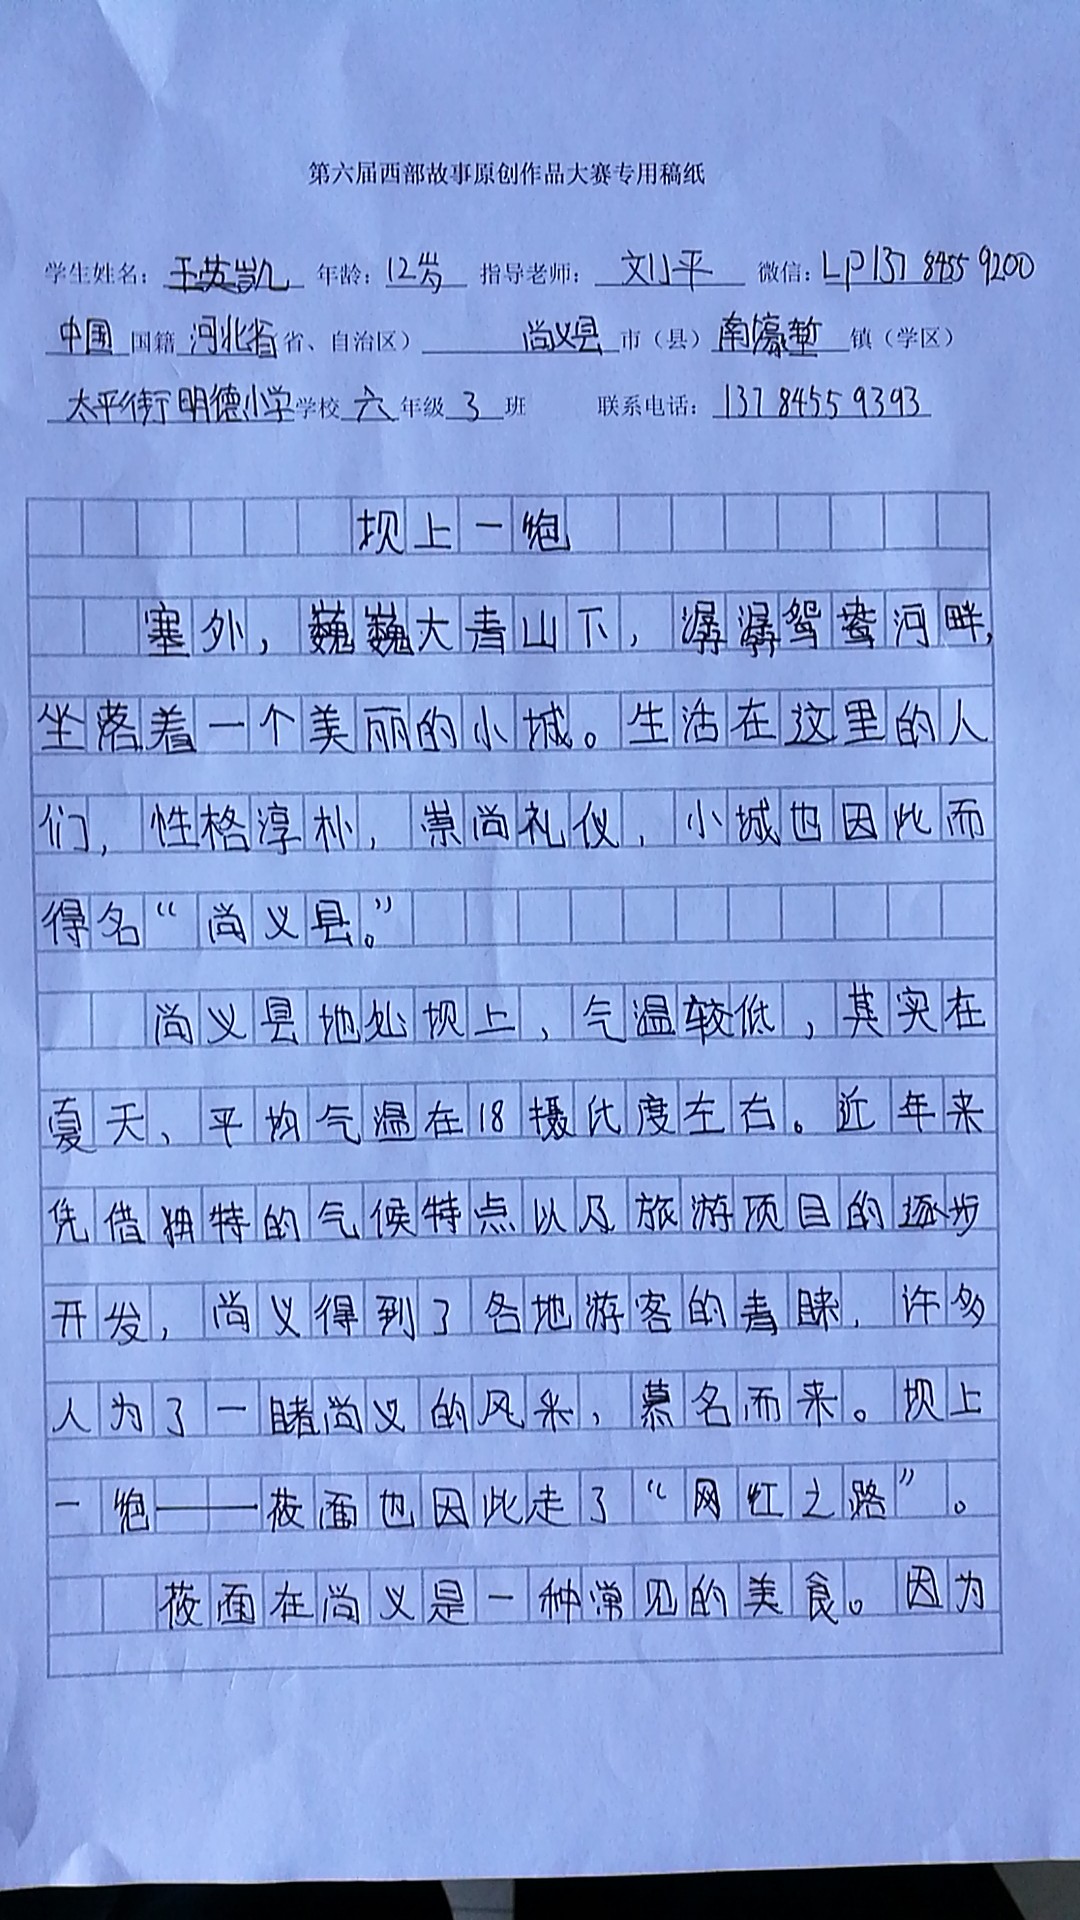 第六届西部故事原创作品大赛专用稿纸
学生姓名：王英凯 年龄：12岁 指导老师：刘小平 微信：LP137 8455 9200
中国 国籍 河北省 省、自治区） 尚义县 市（县）南壕堑 镇（学区）
太平街明德小学 学校 六 年级 3 班 联系电话：137 8455 9393
坝上一绝
塞外，巍巍大青山下，潺潺鸳鸯河畔，
坐落着一个美丽的小城。生活在这里的人
们，性格淳朴，崇尚礼仪，小城也因此而
得名“尚义县。”
尚义县地处坝上，气温较低，其实在
夏天、平均气温在18摄氏度左右。近年来
凭借独特的气候特点以及旅游项目的逐步
开发，尚义得到了各地游客的青睐，许多
人为了一睹尚义的风采，慕名而来。坝上
一绝——莜面也因此走了“网红之路”。
莜面在尚义是一种常见的美食。因为